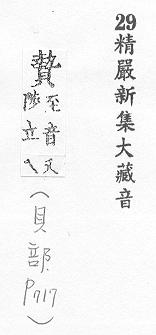 29精嚴新集大藏音
贄
至音又
陟立乀
(貝部P717)